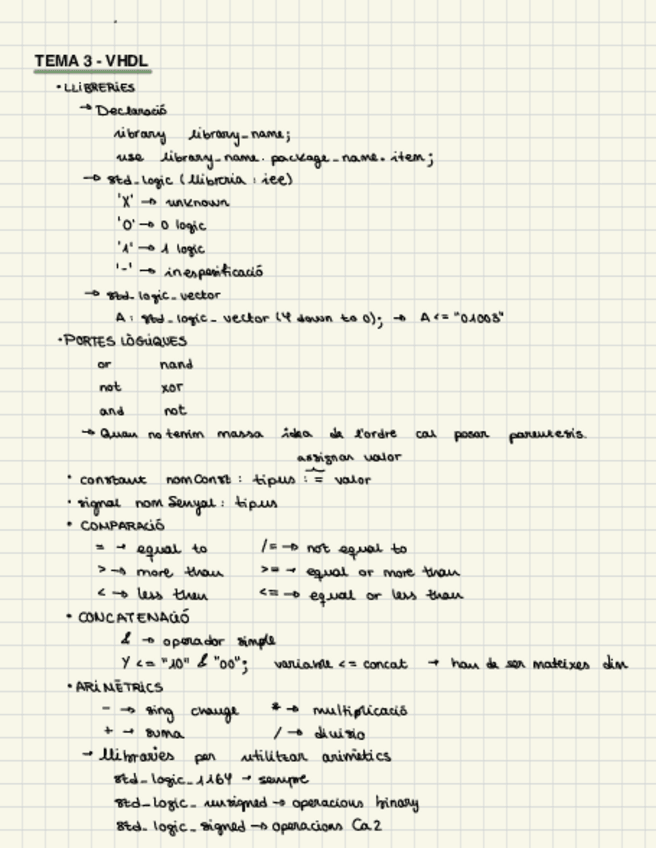 TEMA 3 - VHDL
• LLIBRERIES
→ Declaració
library library_name;
use library_name.package_name.item;
→ std_logic (llibreria : iee)
'X' → unknown
'0' → 0 logic
'1' → 1 logic
'-' → inespesificació
→ std_logic_vector
A : std_logic_vector (4 down to 0); → A <= "01003"
• PORTES LÒGIQUES
or nand
not xor
and not
→ Quan no tenim massa idea de l'ordre cal posar parentesis.
assignar valor
• constant nomConst : tipus := valor
• signal nomSenyal : tipus
• COMPARACIÓ
= → equal to /= → not equal to
> → more than >= → equal or more than
< → less then <= → equal or less than
• CONCATENACIÓ
& → operador simple
Y <= "10" & "00"; variable <= concat → han de ser mateixes dim
• ARIMÈTRICS
- → sing change * → multiplicació
+ → suma / → divisio
→ llibraries per utilitzar arimètics
std_logic_1164 → sempre
std_logic_unsigned → operacions binary
std_logic_signed → operacions Ca2